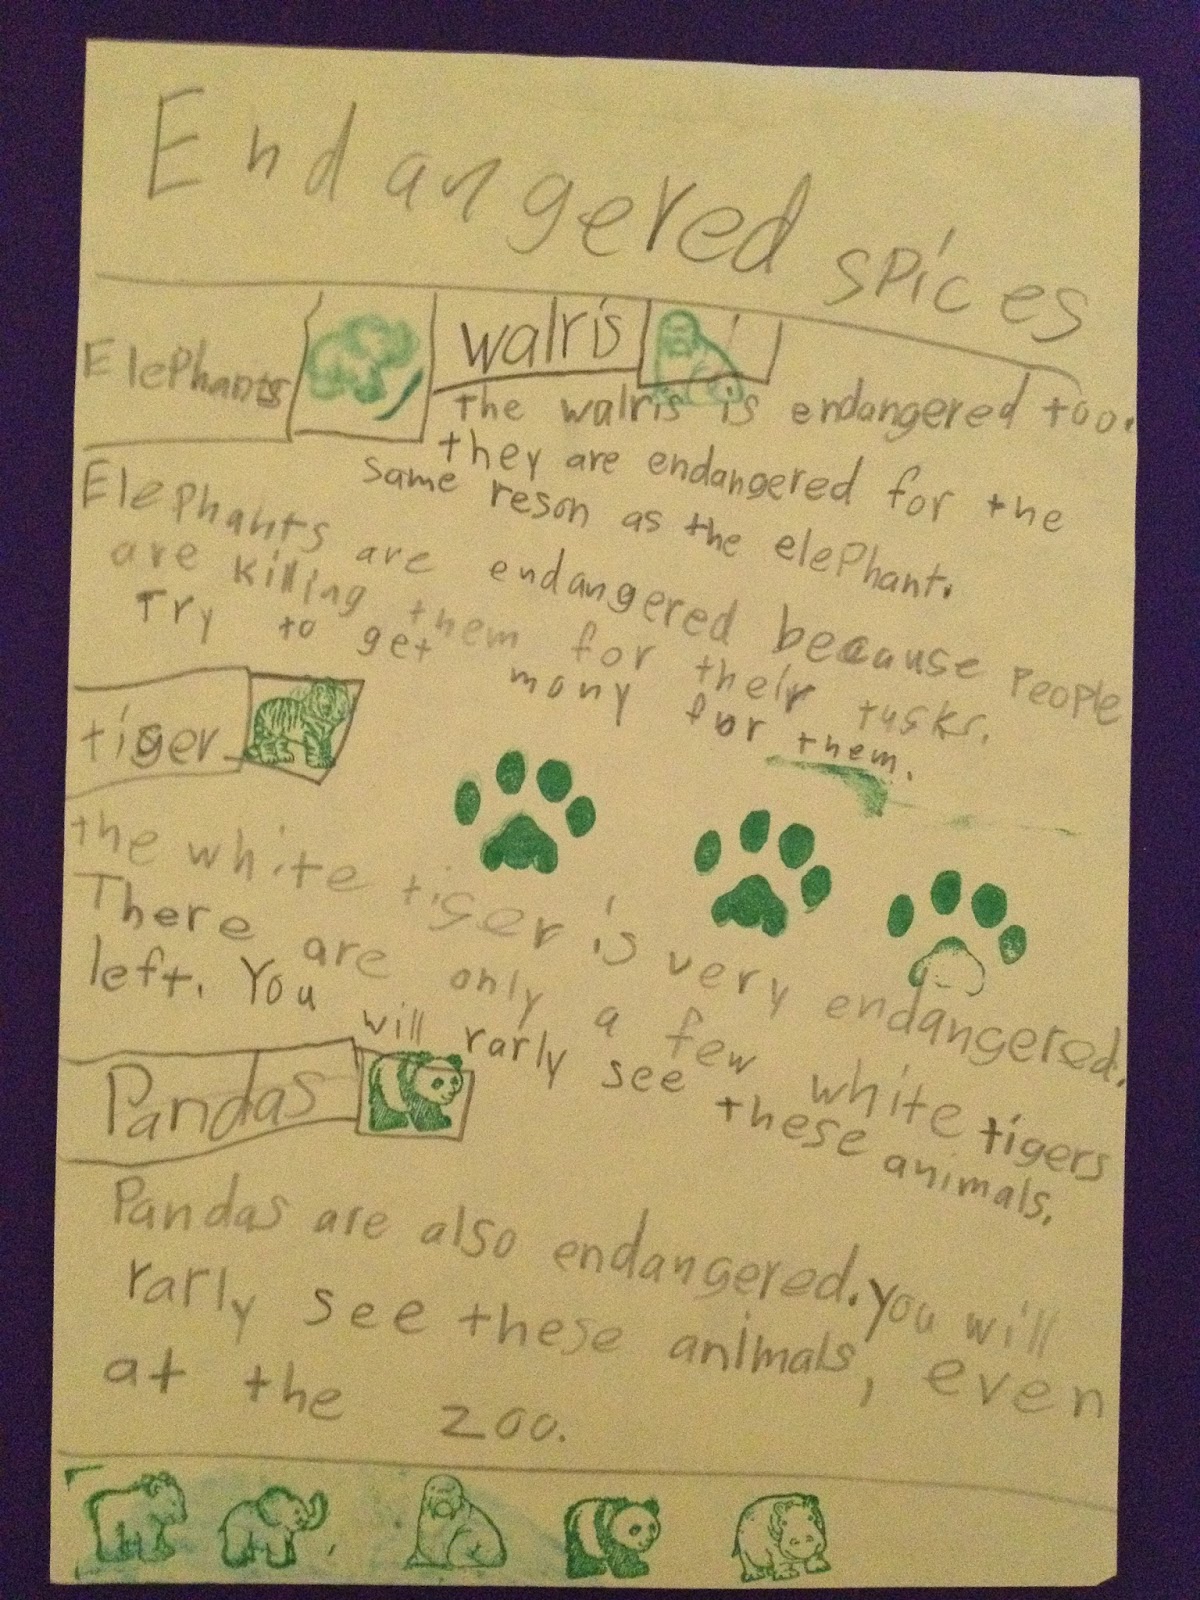 Endangered spices
Elephants
walris
the walris is endangered too.
they are endangered for the
same reson as the elephant.
Elephants are endangered becaause People
are killing them for their tusks.
Try to get many for them.
tiger
the white tiger is very endangered.
There are only a few white tigers
left. You will rarly see these animals.
Pandas
Pandas are also endangered. you will
rarly see these animals, even
at the zoo.